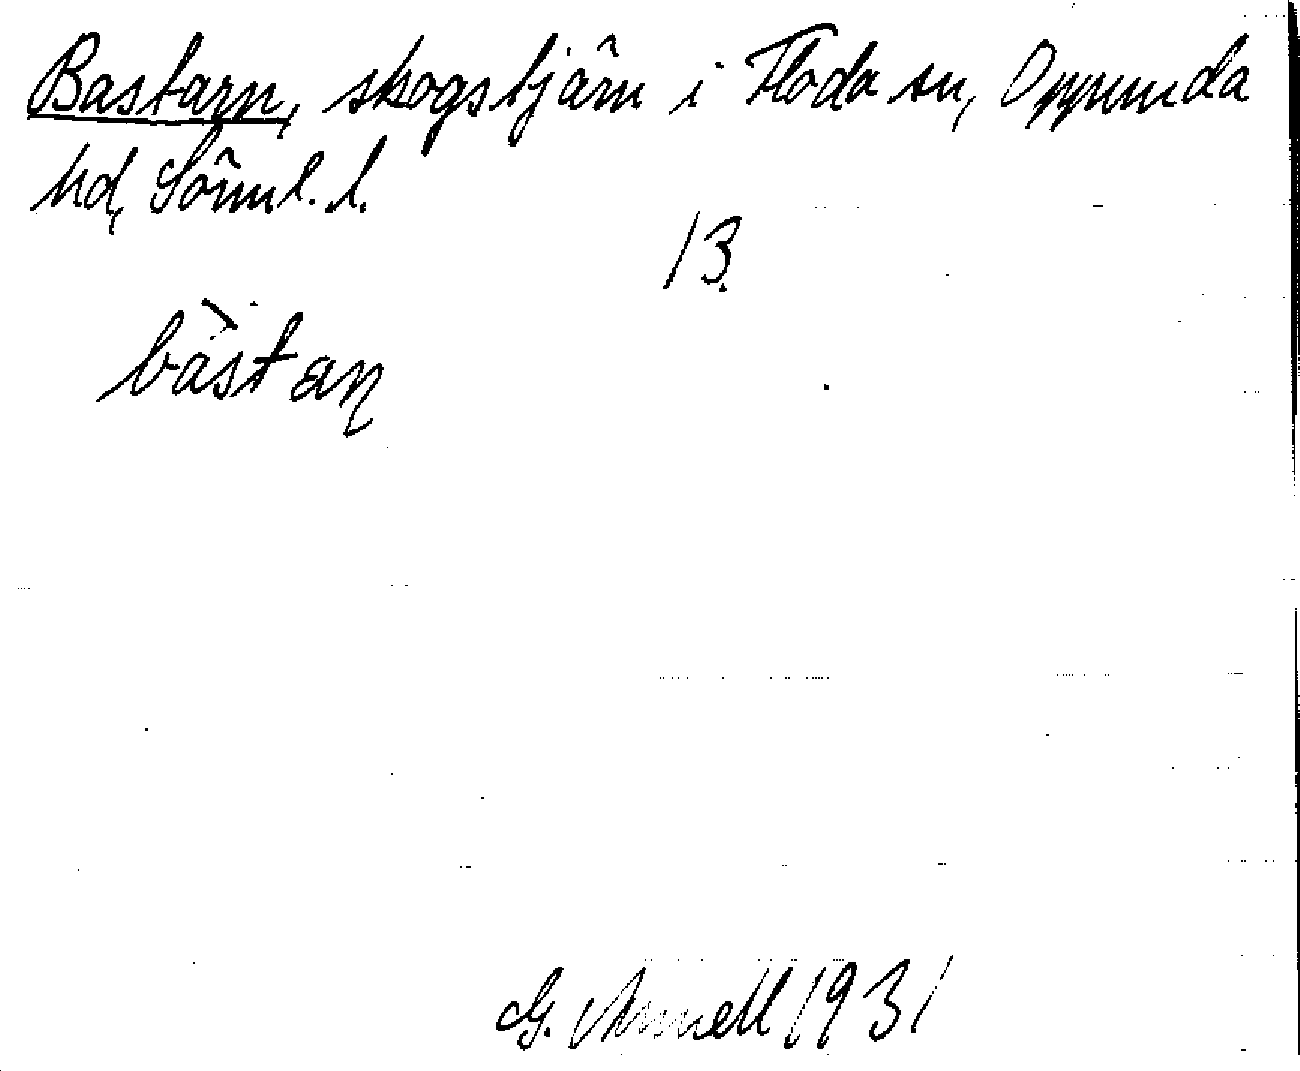 Bastarn, skogstjärn i Floda sn, Oppunda
hd, Söml. l.
13.
bàstaɳ
G. Annell 1931